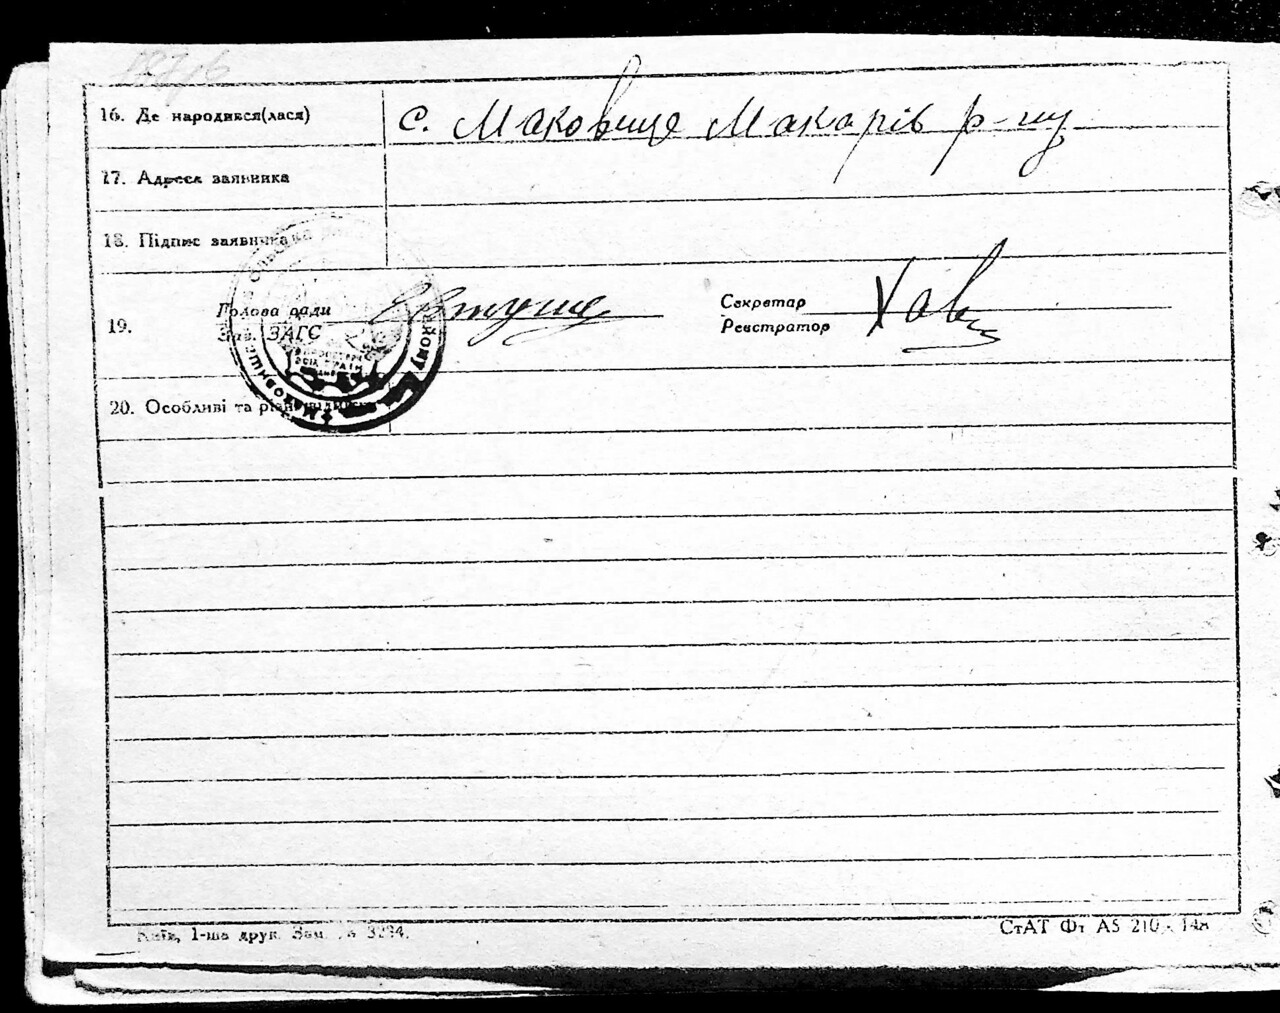 16. Де народився(лася)
с. Маковище Макарів р-ну
17. Адреса заявника
18. Підпис заявника
19.
Голова ради
Зав. ЗАГС
Секретар
Реєстратор
Хав
20. Особливі та різні відмітки
Київ, 1-ша друк. Зам. № 3284.
СтАТ Фт А5 210 × 148